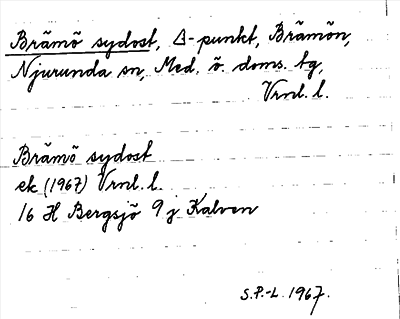 Brämö sydost, Δ-punkt, Brämön,
Njurunda sn, Med. ö. doms. tg,
Vrnl. l.
Brämö sydost
ek (1967) Vrnl. l.
16 H Bergsjö 9 j Kalven
S.P.-L. 1967.